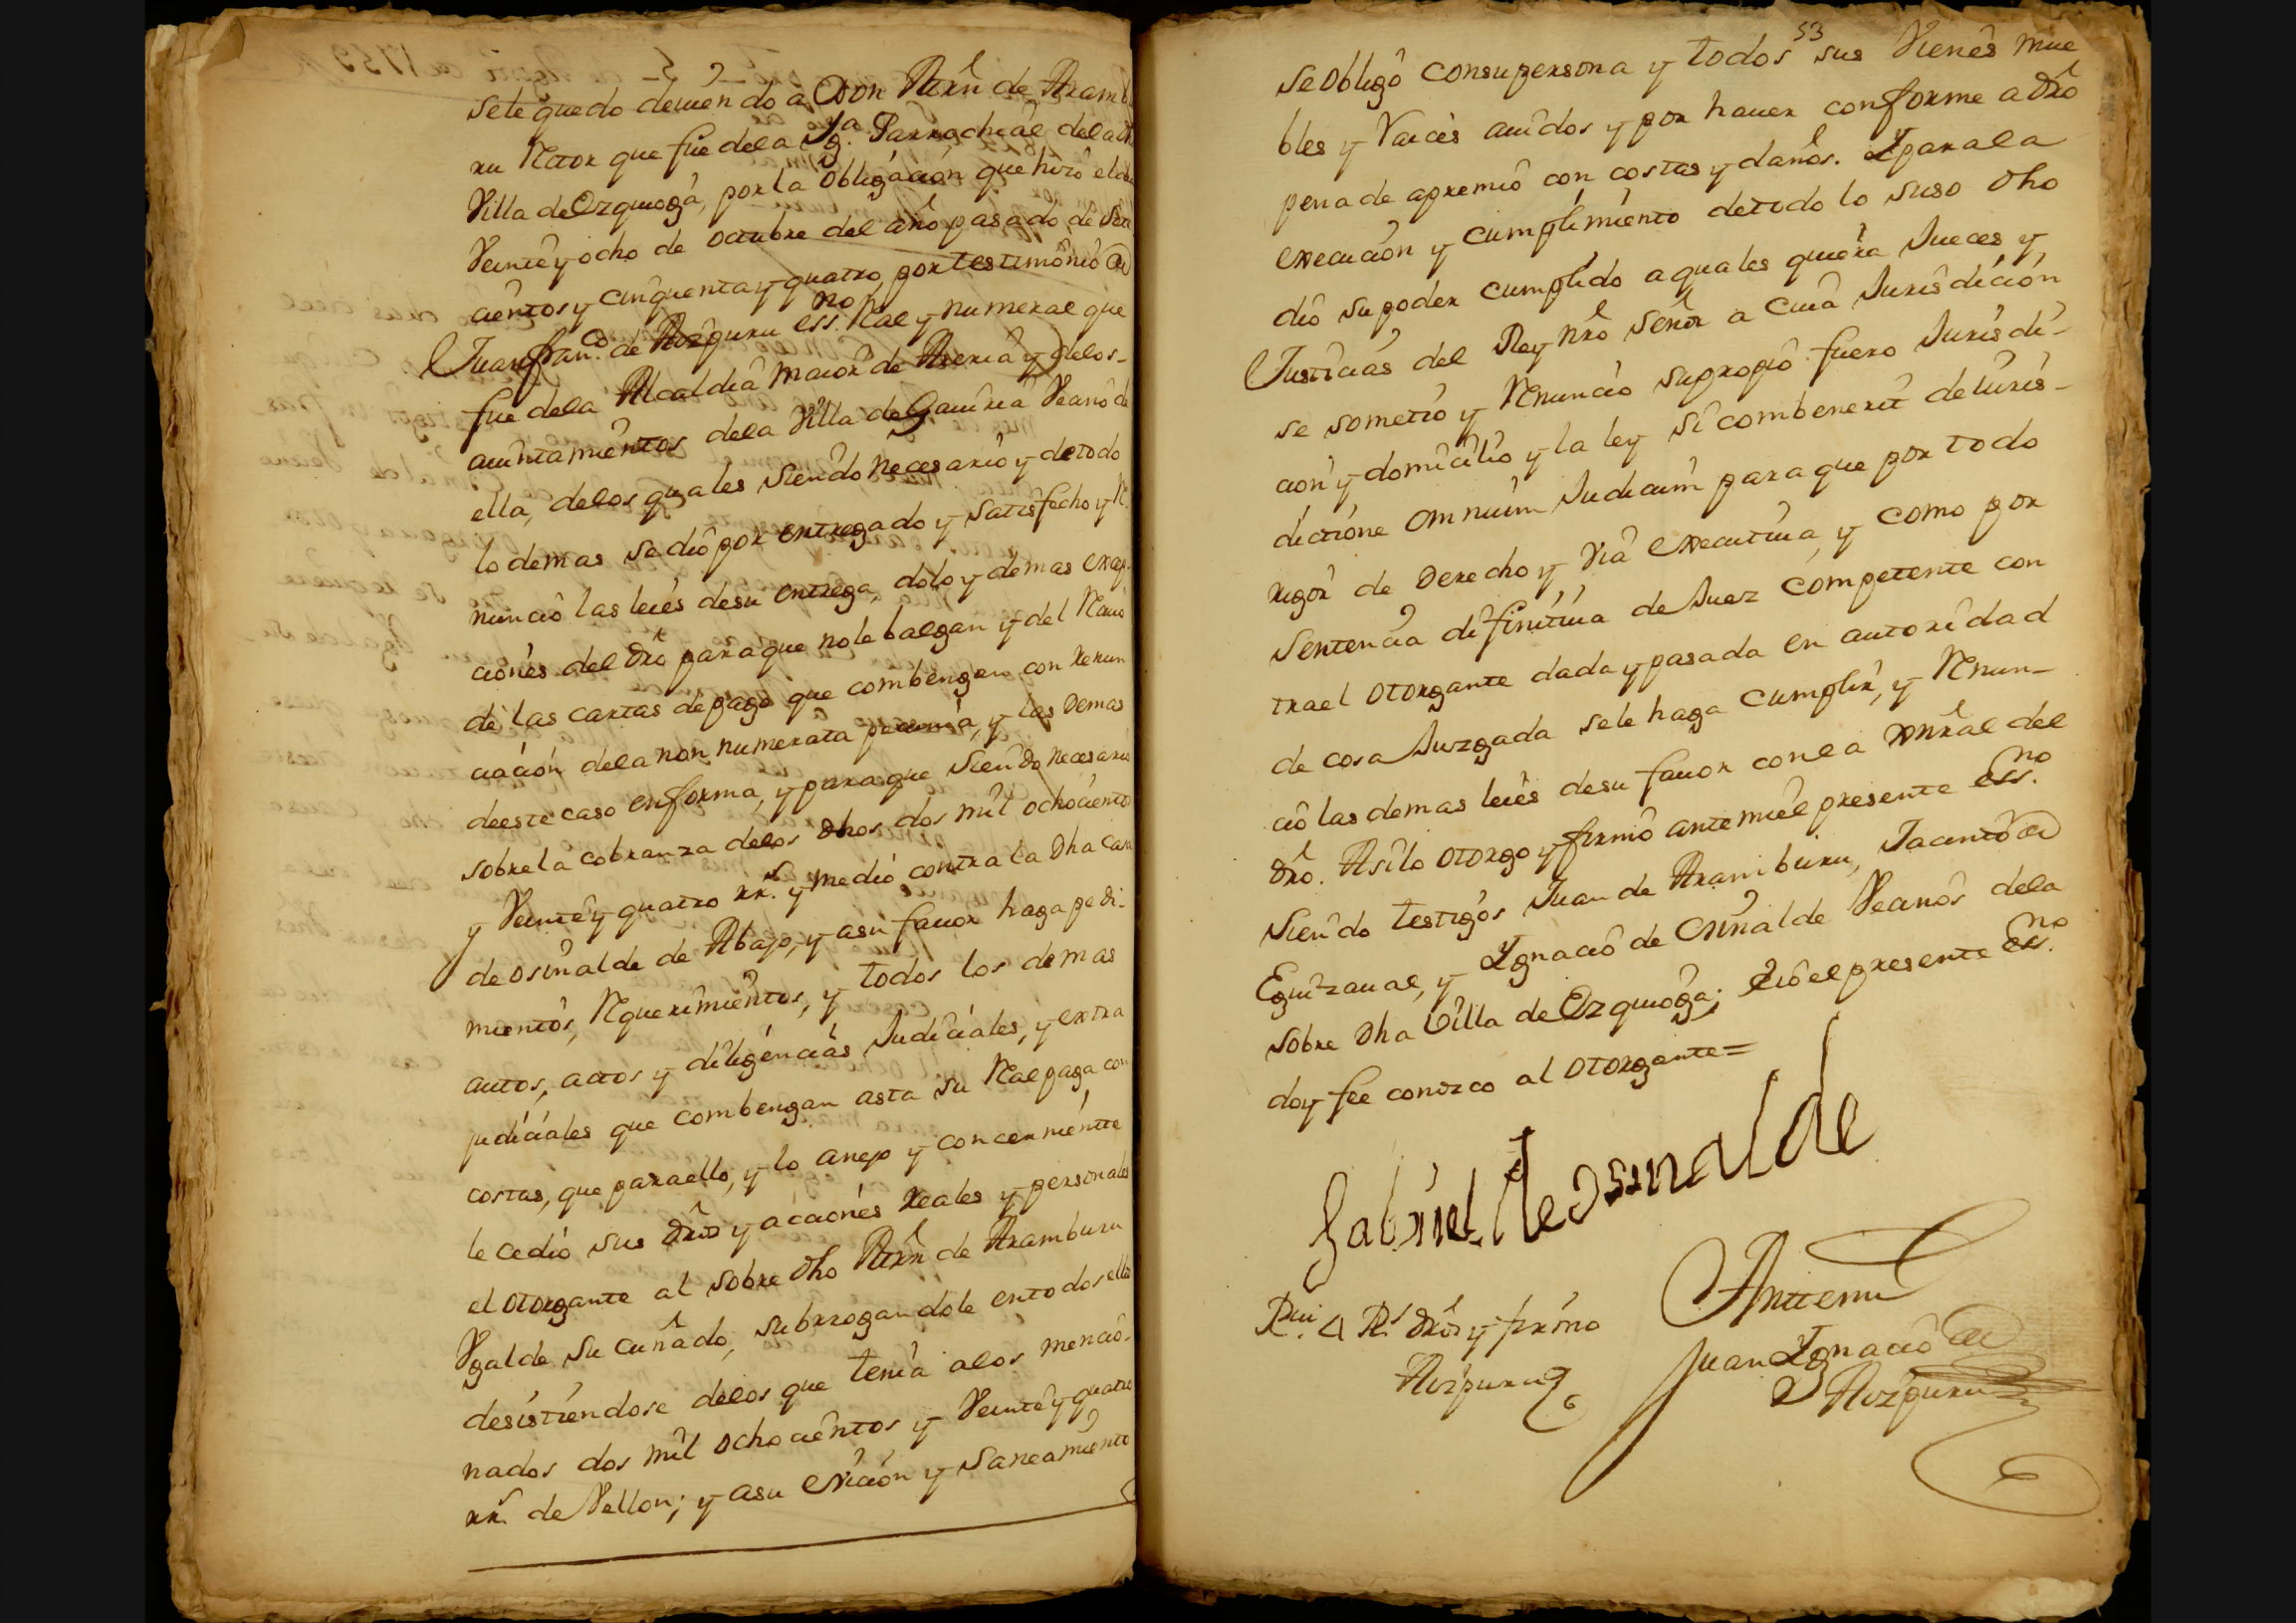 sele quedo deuiendo a Don Mrñ de Arambu
ru Retor que fue dela Yg.ª Parrochial dela dha
Villa de Ezquioga, por la obligaçión que hizo el dia
Veinte y ocho de octubre del año pasado de Sete
cientos y cinquenta y quatro, por testimonio de
Juan Fran.co de Aizpuru ess.no Ral y numeral que
fue dela Alcaldia maior de Areria y delos
auintamientos dela Villa de Gauiria Vecino de
ella, delos quales siendo necesario y de todo
lo demas se dio por entregado y satisfecho y Re
nunció las leies desu entrega, dolo y demas excep
ciones del dro para que nole balgan y del Reciuo
de las cartas de pago que combengan con renun
ciación dela non numerata pecunia, y las demas
deeste caso en forma, y para que siendo necesario
sobre la cobranza delos dhos dos mil ochocientos
y Veinte y quatro rr.s y medio contra la dha casa
de osinalde de Abajo, y asu fauor haga pedi-
mientos, Requerimientos, y todos los demas
autos, actos y diligencias Judiciales, y extra
judiciales que combengan asta su Real paga con
costas, que para ello, y lo anejo y concerniente
le cedió sus dros y acciones reales y personales
el otorgante al sobre dho Mrñ de Aramburu
Vgalde su cuñado, subrrogandole en todos ellos
desistiendose delos que tenia alos mencio-
nados dos mil ochocientos y Veinte y quatro
rr.s de Vellon; y asu evicción y saneamiento
53
se obligó consu persona y todos sus Vienes mue
bles y Raices auidos y por hauer conforme a dro
pena de apremio con costas y daños. Y para la
execución y cumplimiento detodo lo suso dho
dio su poder cumplido a quales quiera Jueces y
Justicias del Rey nro señor a cuia Jurisdición
se sometió y Renuncio su propio fuero Jurisdi-
ción y domicilio y la ley si combenerit de Iuris-
dictione omnium Judicum para que por todo
rigor de Derecho y via executiua, y como por
sentencia difinitiua de Juez competente con
tra el otorgante dada y pasada en autoridad
de cosa Juzgada sele haga cumplir, y Renun-
ció las demas leies desu fauor con la gnral del
dro. Asilo otorgo y firmo ante mi el presente ess.no
siendo testigos Juan de Aramburu, Jacinto de
Eguizaual, y Ygnacio de Osinalde Vecinos dela
sobre dha Villa de Ezquioga; E io el presente ess.no
doy fee conozco al otorgante =
Gabriel de osinalde
Reciui 4 Rs dros y firmo
Aizpuru
Antemi
Juan Ygnacio de
Aizpuru